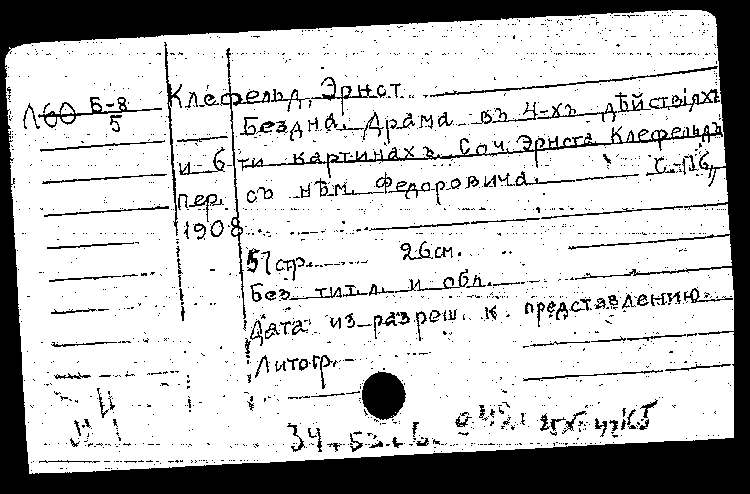 Клефельд, Эрнст
Л60 Б-8/5
Бездна. Драма въ 4-хъ дѣйствіяхъ
и 6-ти картинахъ. Соч. Эрнста Клефельдъ
пер. съ нѣм. Федоровича. С.-Пб,,
1908
57 стр. 26 см.
Без тит. л. и обл.
Дата из разреш. к представлению.
Литогр.